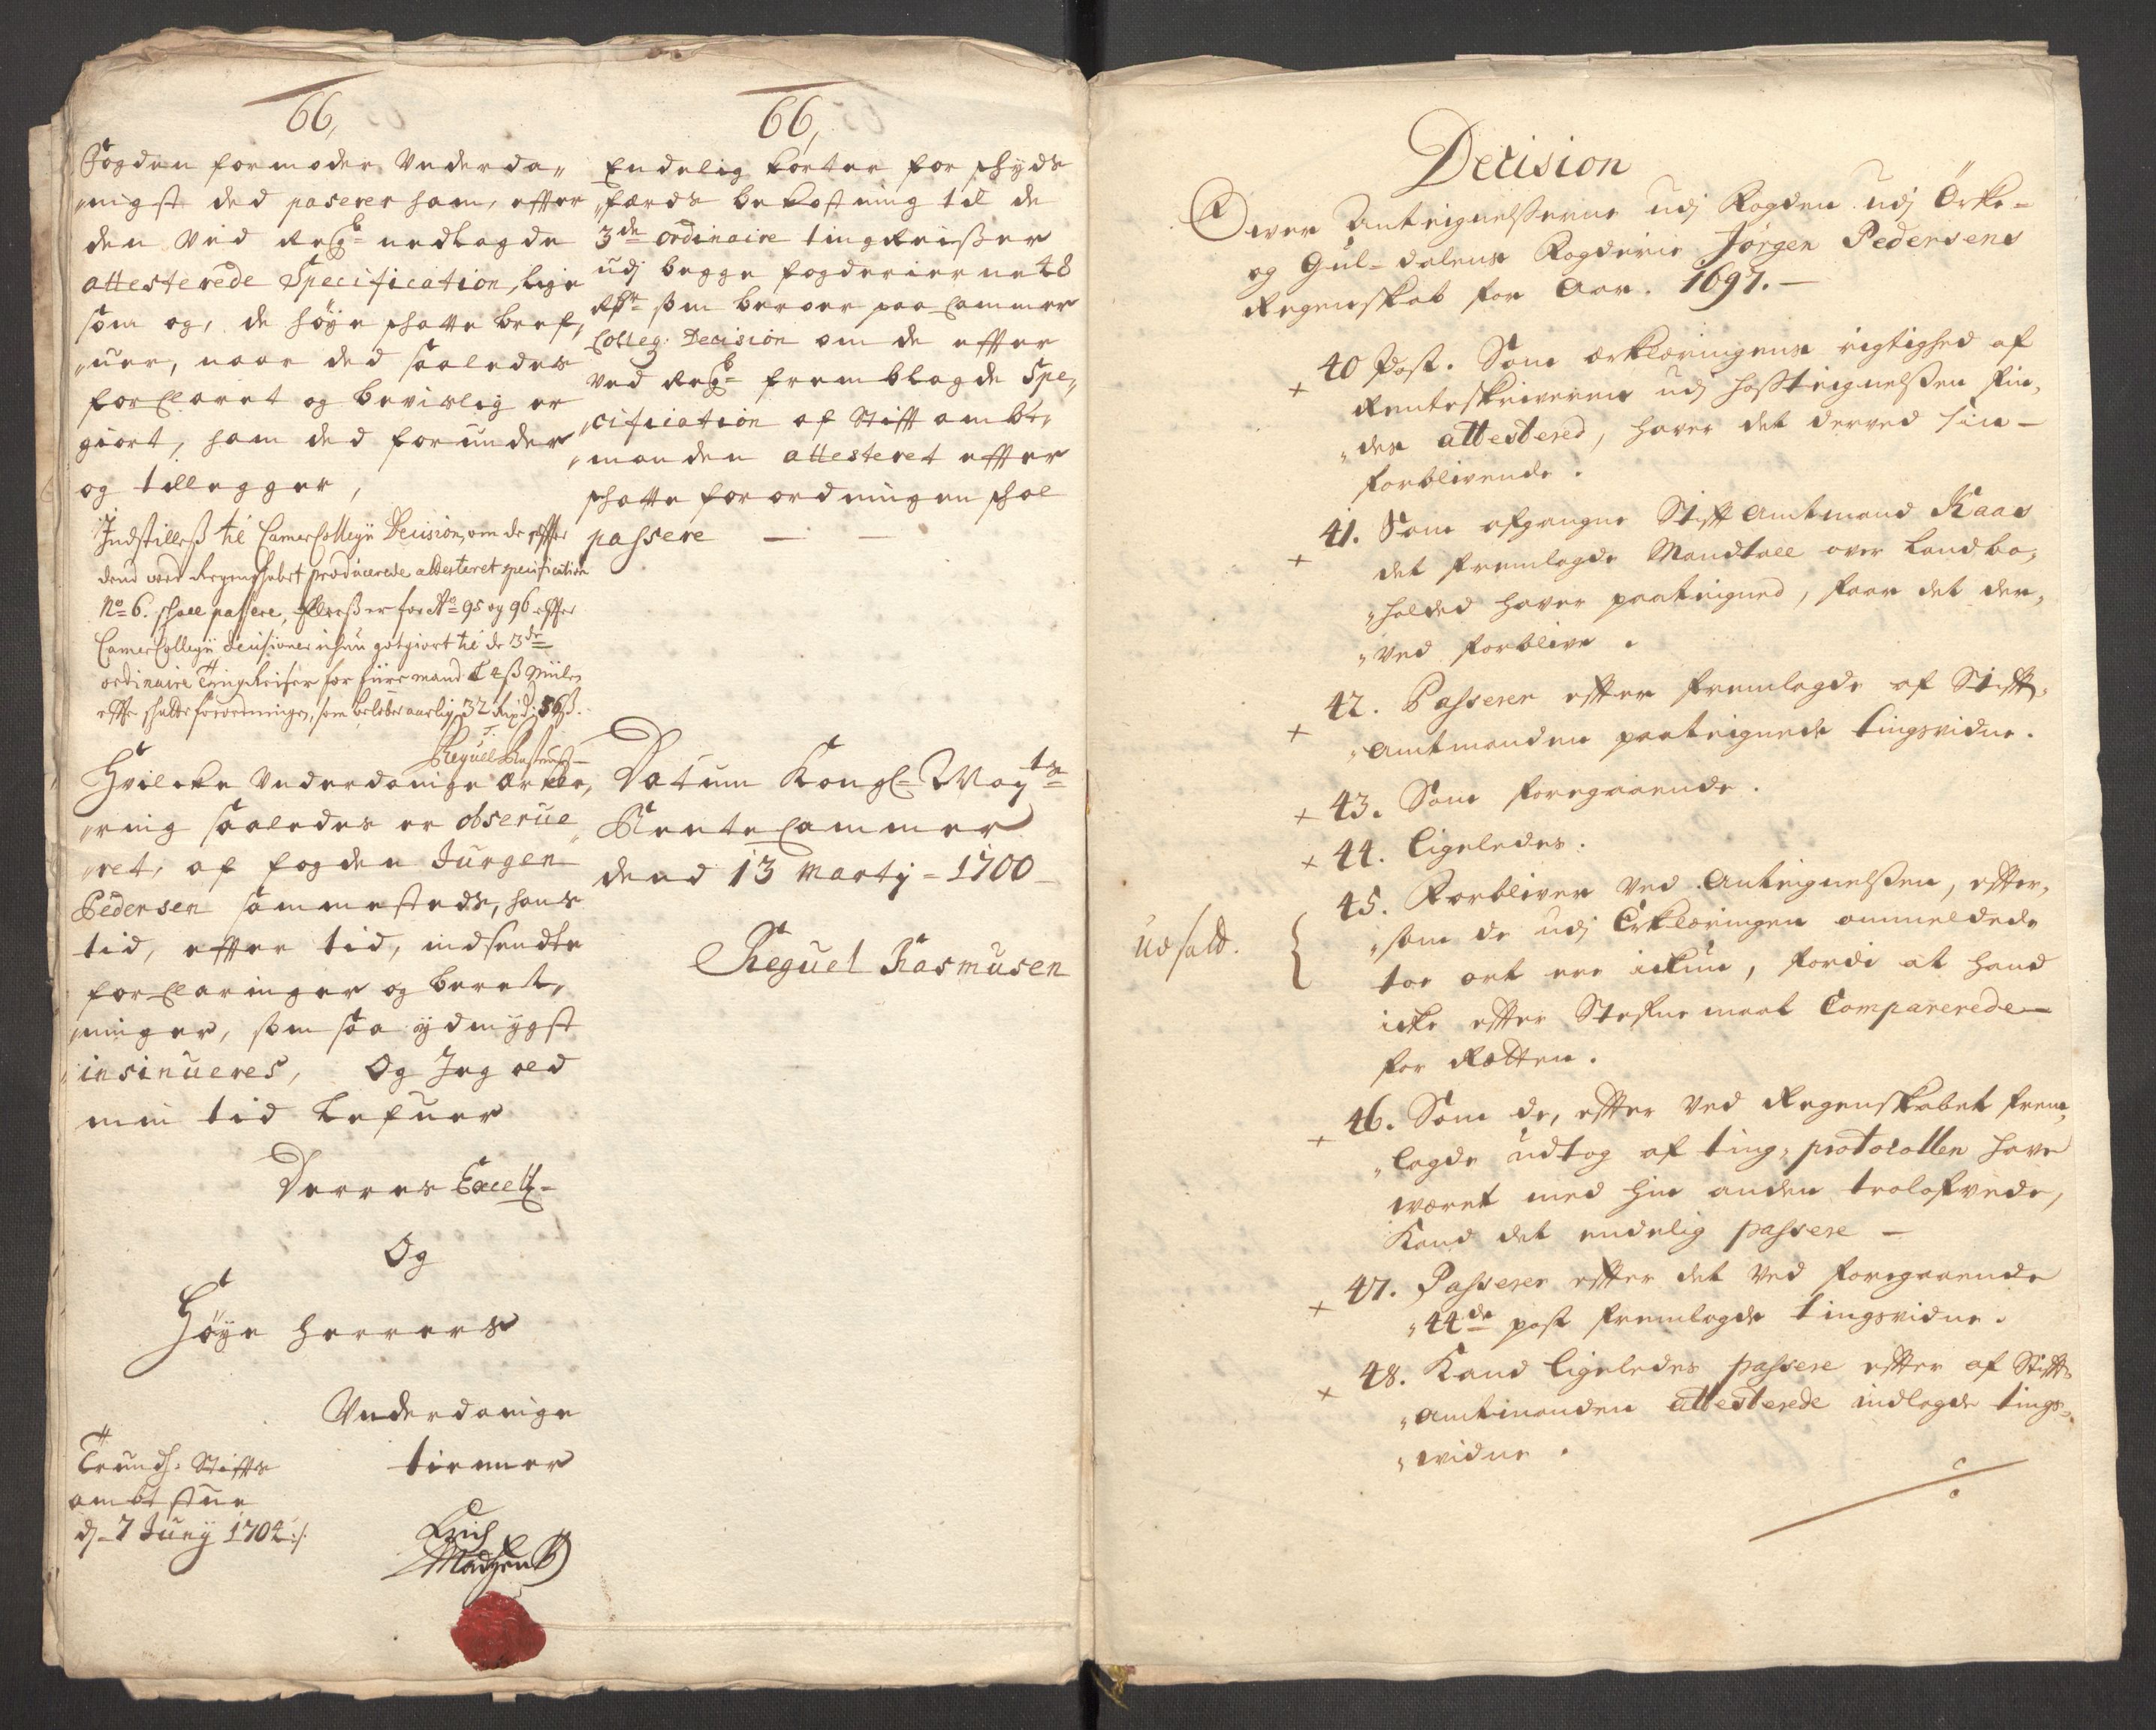 66,
Fogden formoder Underda„
„nigst ded paserer ham, efter
den Ved Regb nedlagde
attesterede Specification, lige
som og, de höye schatte bref„
„uer, naar ded saaledes
forclaret og bevislig er
giort, ham ded forunder
og tillegger,
Indstilless til CamerCollegii Decision, om de effter
dend ved Regenschabet producerede attesteret specification
No 6. schall passere, Ellers er for Ao 95 og 96 effter
CamerCollegii decisioner ichun gotgiort til de 3de
ordinaire Tingreiser for fiire mand
effter schatteforordningen, som belöber aarlig 32 Rixd: 36 s.
Hvilcke Underdanige Ercklæ„
„ring saaledes er obserue
„ret, af fogden Jürgen
Pedersen sammesteds, hans
tid, efter tid, indsendte
forclaringer og beret„
„ninger, som saa ydmygst
insinueres, Og Jeg ald
min tid Lefuer
Derres Excell
Og
Höye Herrers
Underdanige
tienner
Trundh: Stiffts
ambtstue
d 7 Juny 1702 :/:
Erich
Madzen
66,
Endelig korter for schyds
„færds bekostning til de
3de ordinaire tingreisser
udj begge fogderierne 48
Rdr som beroer paa Cammer
Colleg: Decision om de efter
ved Regb fremblagde Spe„
„cification af Stift ambt„
„manden attesteret efter
schatte forordningen schal
passere —
Datum Kongl Mayts
RenteCammer
dend 13 Marty - 1700
Reguel Rasmusen
Decision
Over Anteignelsserne udj Fogden udj Örke-
og Gul-dalens Fogderie Jörgen Pedersens
Regenskab for Aar. 1697. —
+ 40 Post. Som erklæringens rigtighed af
Renteskriveren udj hossteignelssen fin„
„des attestered, haver det derved sin —
forblivende.
+ 41. Som afgangne Stiftamtmand Kaas
det fremlagde Mandtall over Landbo„
„holded haver paateigned, faar det der„
„ved forblive.
+ 42. Passerer efter fremlagde af Stift„
„Amtmanden paateignede tingsvidne.
+ 43. Som foregaaende.
+ 44. Ligeledes.
45. Forbliver ved Anteignelssen, efter„
„som de udj Erklæringen anmeldede
toe ort ere ickun, fordi at hand
icke efter Stefnemaal Comparerede —
for Rætten.
udsatt.
+ 46. Som de, efter ved Regenskabet frem„
„lagde udtog af ting„protocollen have
været med hin anden trolofvede,
Kand det endelig passere —
+ 47. Passerer efter det ved foregaaende
„44de post fremlagde tingsvidne.
+ 48. Kand ligeledes passere efter af Stift„
„Amtmanden attesterede indlagde tings„
„vidne.